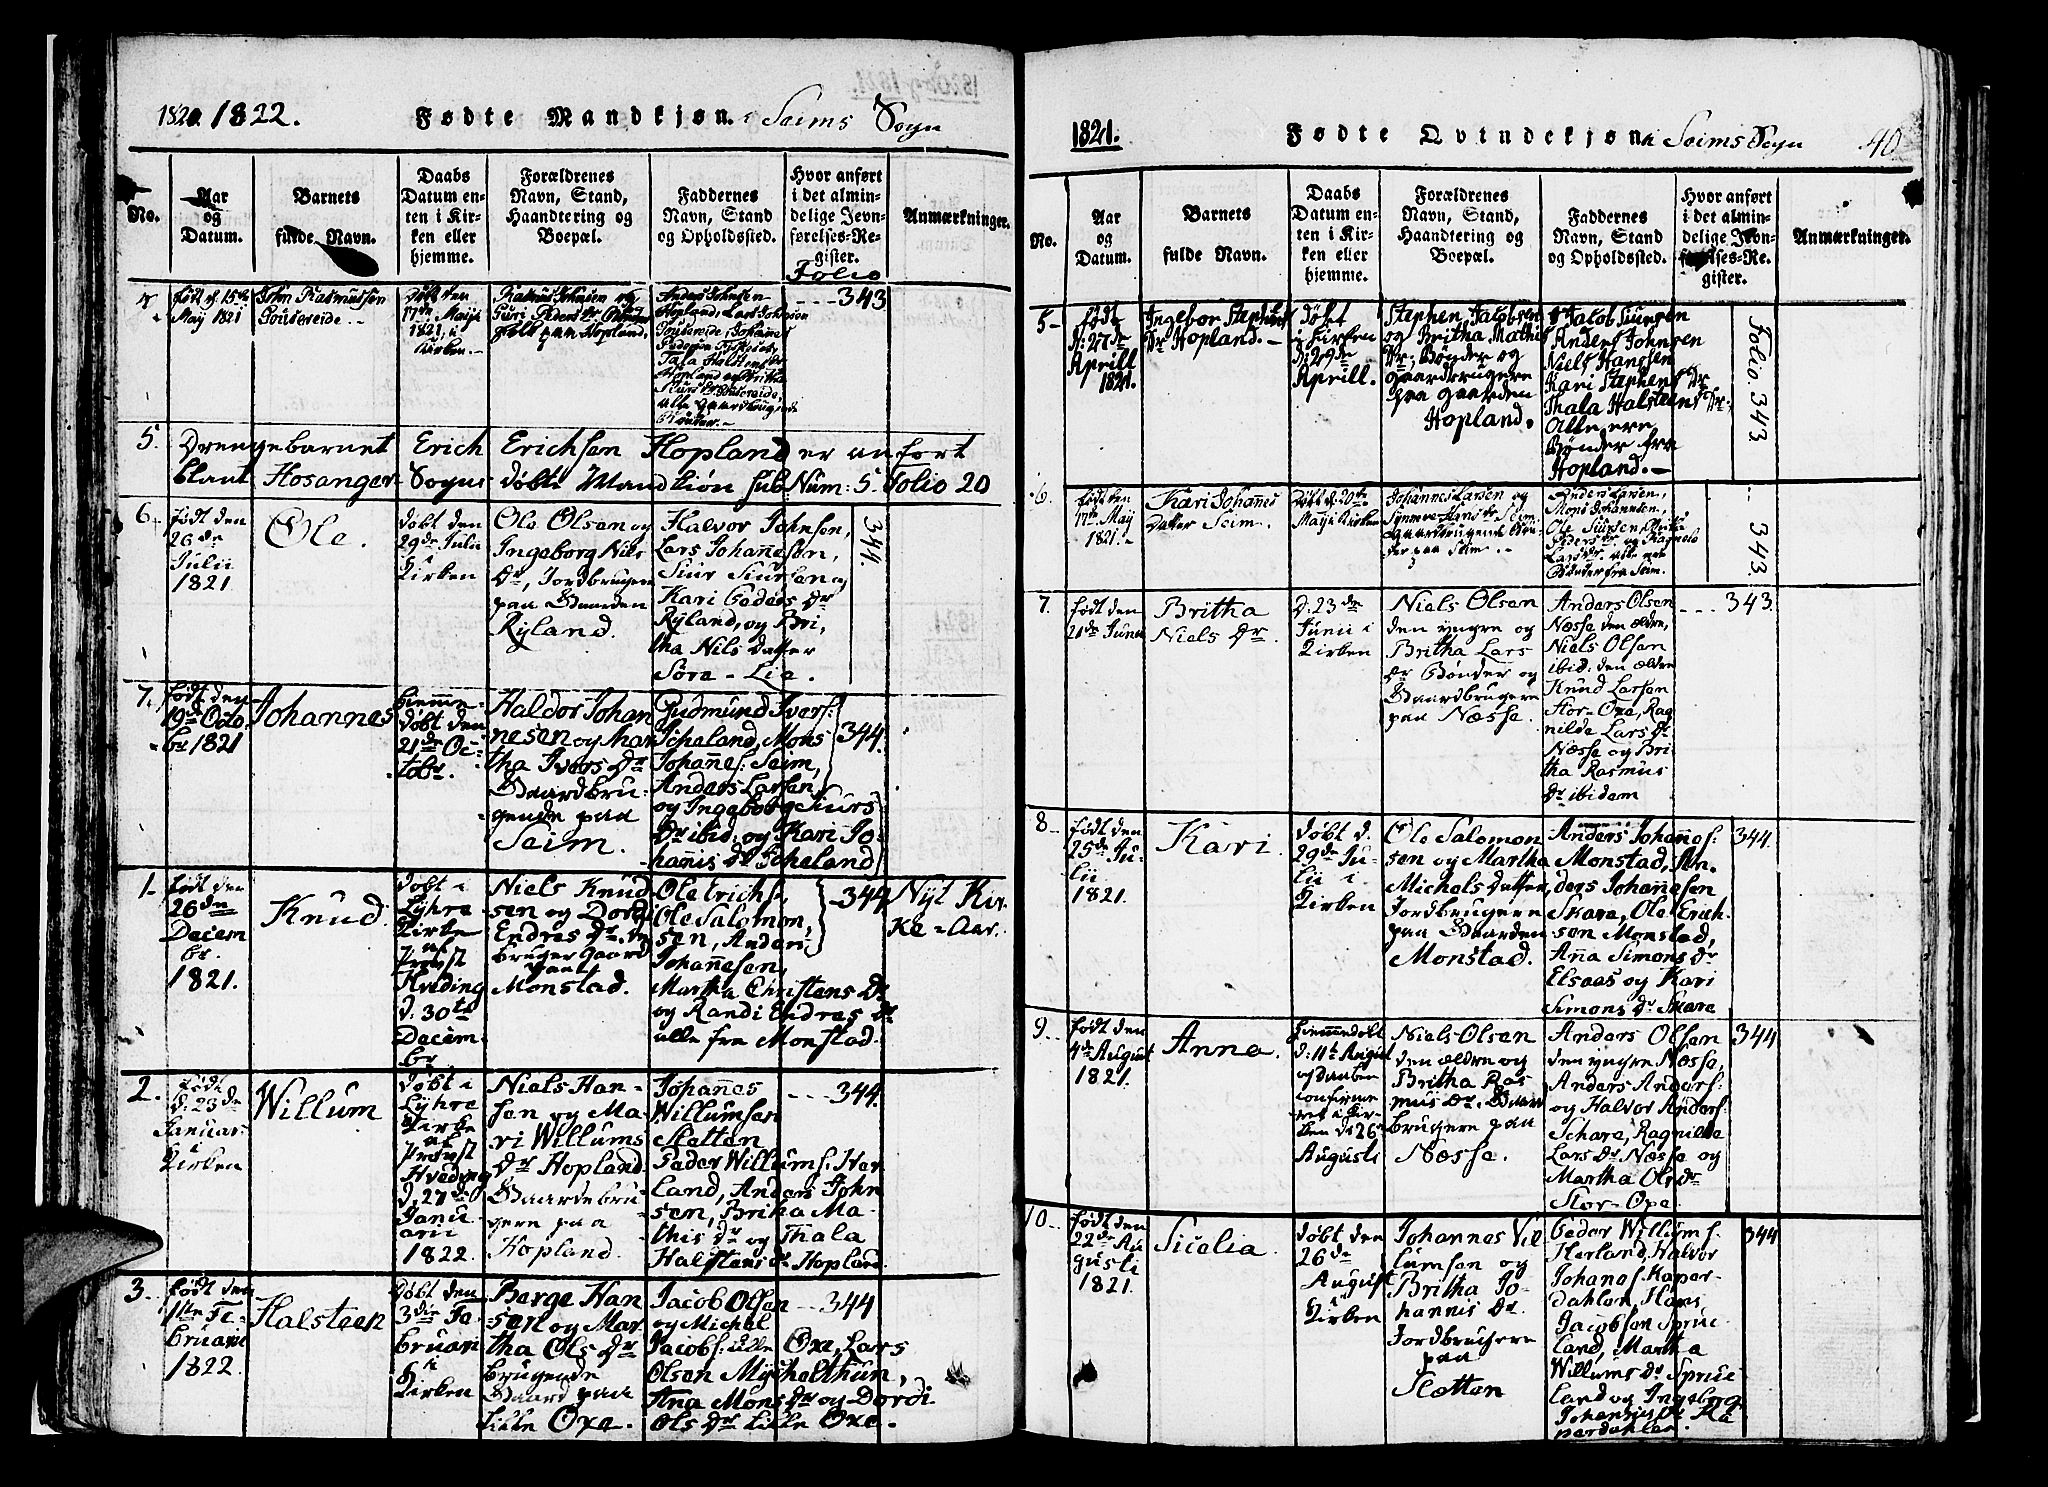 1821. 1822. Fødte Mandkjøn. i Seims Sogn
No.
Aar
og
Datum.
Barnets
fulde Navn.
Daabs
Datum en-
ten i Kir-
ken eller
hjemme.
Forældrenes
Navn, Stand,
Haandtering og
Boepæl.
Faddernes
Navn, Stand
og Opholdssted.
Hvor anført
i det almin-
delige Jevn-
førelses-Re-
gister.
Folio
Anmærkninger.
født d. 15de
May 1821
John Rasmussen
Døbt den
17de Maji
1821, i
Kirken.
Rasmus Johnsen og
Guri Peders Dr
folk paa Hopland.
Anders Johnsen
Hopland, Lars Johnsen
Johannes
Hopland og Britha
alle Gaardbrugende
Bønder.
343
5. Drengebarnet Erich Erichsen Hopland er anført
blant Hosanger Sogns døbte Mandkiøn sub Num: 5. Folio 20
6.
født den
26de
Julii
1821
Ole.
døbt den
29de Julii
i
Kirken
Ole Olsen og
Ingeborg Nils
Dr, Jordbrugere
paa Gaarden
Ryland.
Halvor Johnsen,
Lars Johannesøn,
Siur Siursen og
Kari Peders Dr
Ryland, og Bri,
tha Nils Datter
Søre-Lie.
344.
7.
født den
19de Octo
br 1821
Johannes
hiemme
døbt den
21de Oc-
tobr.
Haldor Johan
nesen og Mar
tha Ivers Dr
Gaardbru
gende paa
Seim.
Gudmund Ivers:
Icheland, Mons
Johannes: Seim,
Anders Larsen
og Ingeborg Siurs
Dr ibid: og Kari Jo-
hannis Dr Icheland
344.
1.
født den
26de
Decem
br.
1821.
Knud
døbt i
Lyhre
Kirke
af
Provst
Hveding
d. 30te
Decem-
br
Niels Knud
sen og Dorde
Endres Dr,
bruger Gaard
paa
Monstad.
Ole Erichs:
Ole Salomon,
sen, Anders
Johannesen,
Martha Christens Dr
og Randi Endres Dr
alle fra Monstad.
344
Nyt Kir
ke-Aar.
2.
født
d: 23de
Januar
i
Kirken
Willum
døbt i
Lyhre
Kirke
af
Provst
Hveding
d. 27de
Janu
arii
1822
Niels Han-
sen og Ma-
ri Willums
Dr Hopland
Gaardebru-
gere paa
Hopland.
Johannes
Willumsen
Sletten
Peder Willums: Her
land, Anders John
sen, Britha Ma-
this Dr og Thala
Halstens Dr Hopland
344.
3.
født den
1ste Fe-
bruarii
1822.
Halsteen
Døbt den
3die Fe
bruari
i
Kirken
Berge Han
sen og Mar
tha Ols Dr
brugende
Gaard paa
Lille Oxe.
Jacob Olsen
og Michel
Jacobs: Lille Oxe, Lars
Olsen Mychelthun,
Ana Mons Dr og Dordi
Ols Dr Lille Oxe.
344
1821. Fødte Qvindekjøn i Seims Sogn 40
No.
Aar
og
Datum.
Barnets
fulde Navn.
Daabs
Datum en-
ten i Kir-
ken eller
hjemme.
Forældrenes
Navn, Stand,
Haandtering og
Boepæl.
Faddernes
Navn, Stand
og Opholdssted.
Hvor anført
i det almin-
delige Jevn-
førelses-Re-
gister.
Anmærkninger.
5.
født
d: 27de
Aprill
1821.
Ingebor Stephens
Dr Hopland.
Døbt
i Kirken
d: 29de
Aprill.
Stephen Jacobsen
og Britha Mathis
Dr: Bønder og
gaardbrugere
paa gaarden
Hopland.
Jacob Siursen
Anders Johnsen
Niels Hansen
Kari Stephens Dr
Thala Halsteens Dr.
Alle ere
Bønder fra
Hopland.
Folio. 343
6.
født den
17de May
1821.
Kari Johannes
Datter Seim.
Døbt d: 20de
Maji i Kirken
Johannes Larsen og
Synneve Hans Dr Seim
gaardbrugende Bøn
der paa Seim.
Anders Larsen,
Mons Johannsen,
Ole Siursen, Britha
Peders Dr og Ragnele
Lars Dr. alle
Bønder fra Seim.
343.
7.
født den
21de Junii
Britha
Niels Dr.
D: 23de
Junii i
Kirken
Niels Olsen
den yngre og
Britha Lars
Dr Bønder og
Gaardbrugere
paa Næsse.
Anders Olsen
Næsse den ældre,
Niels Olsen
ibid: den ældre
Knud Larsen
Stor-Oxe, Rag
nilde Lars Dr
Næsse og Bri
tha Rasmus
Dr ibidem
343.
8.
født den
25de Ju-
lii
1821.
Kari.
døbt d.
29de Ju-
lii i
Kirken
Ole Salomon
sen og Martha
Michels Datter,
Jordbrugere
paa Gaarden
Monstad.
Anders Johannes:
Monstad, An-
ders Johanesen
Skare, Ole Erich-
sen Monstad,
Anna Simons Dr
Elsaas og Kari
Simons Dr Skare
344.
9.
født den
4de August
1821.
Anna.
hiemmedøbt
d: 11te August
og daaben
confirme
ret i Kir-
ken d: 26de
Augusti
Niels Olsen
den ældre og
Britha Ras
mus Dr. Gaard
brugere paa
Næsse.
Anders Olsen
den yngre Næsse,
Anders Anders:
og Halvor Anders:
Schare, Ragnilde
Lars Dr Næsse og
Martha Ols Dr
Stor-Oxe.
344
10.
født den
22de Au
gusti
1821.
Sicelia.
døbt den
26de
August
i
Kirken
Johannes Vil
lumsen og
Britha Jo-
hannis Dr.
Jordbrugere
paa
Sletten
Peder Willums:
Herland, Halvor
Johanes: Kaper-
dahlen, Hans
Jacobsen Spruc
land, Martha
Willums Dr Spruc
land og Ingeborg
Johannis Dr Ka
perdahlen.
344